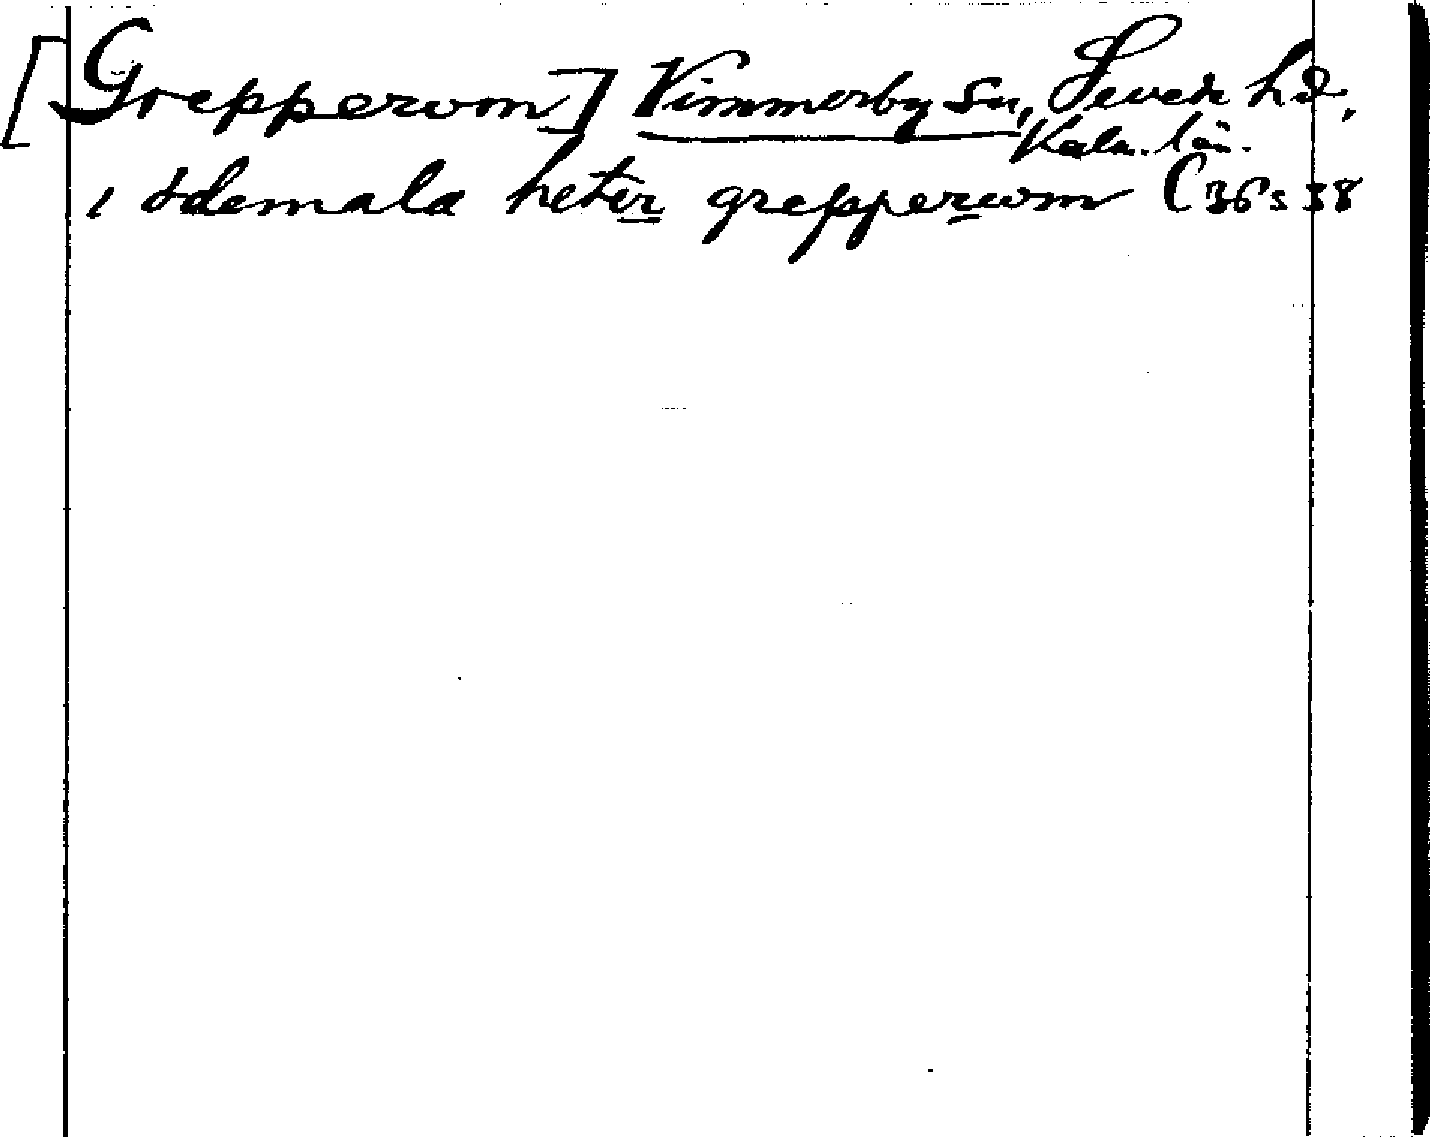 [Grepperum] Vimmerby sn, Sevede hd,
Kalm. län.
i Ødemala heter grepperum (36 s 38